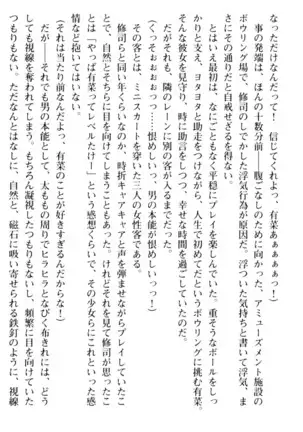 なっただけなんだって！　信じてくれよ、有菜ぁぁぁぁっ！）
　事の発端は、ほんの十数分前――腹ごなしのために向かった、アミューズメント施設の
ボウリング場で、修司のしでかした浮気行為が原因だ。浮ついた気持ちと書いて浮気、ま
さにその通りだと自戒せざるを得ない。
　とはいえ最初は、なにごともなく平穏にプレイを楽しんでいた。重そうなボールをしっ
かりと支え、ヨタヨタと助走をつけながら、人生で初めてだというボウリングに挑む有菜。
そんな彼女を見守り、時に助言をしつつ、幸せな時間を過ごしていたのだ。
　だがそれも、隣のレーンに別の客が入るまでだった。
（くっそぉぉぉぉっつ……恨めしいっ、男の本能が恨めしいっっ！）
　その客とは、ミニスカートを穿いた三人の女性客である。
　修司らと同い年くらいなのか、時折キャアキャアと声を弾ませながらプレイしていたこ
とで、自然とそちらに目を向けてしまうこともあった。けれどそれを見て修司が思ったこ
とは「やっぱ有菜ってレベルたけー」という感想くらいで、その少女らにこれといった感
情など抱いてはいない。
（それは当たり前なんだよっ、有菜のことが好きすぎるんだからな！）
　だが――それでも男の本能として、太ももの周りでヒラヒラとなびく布きれには、どう
しても視線を奪われてしまう。もちろん凝視したつもりもないし、頻繁に目を向けていた
つもりもない。ただなんとはなしに、自然と、磁石に吸い寄せられる鉄釘のように、視線